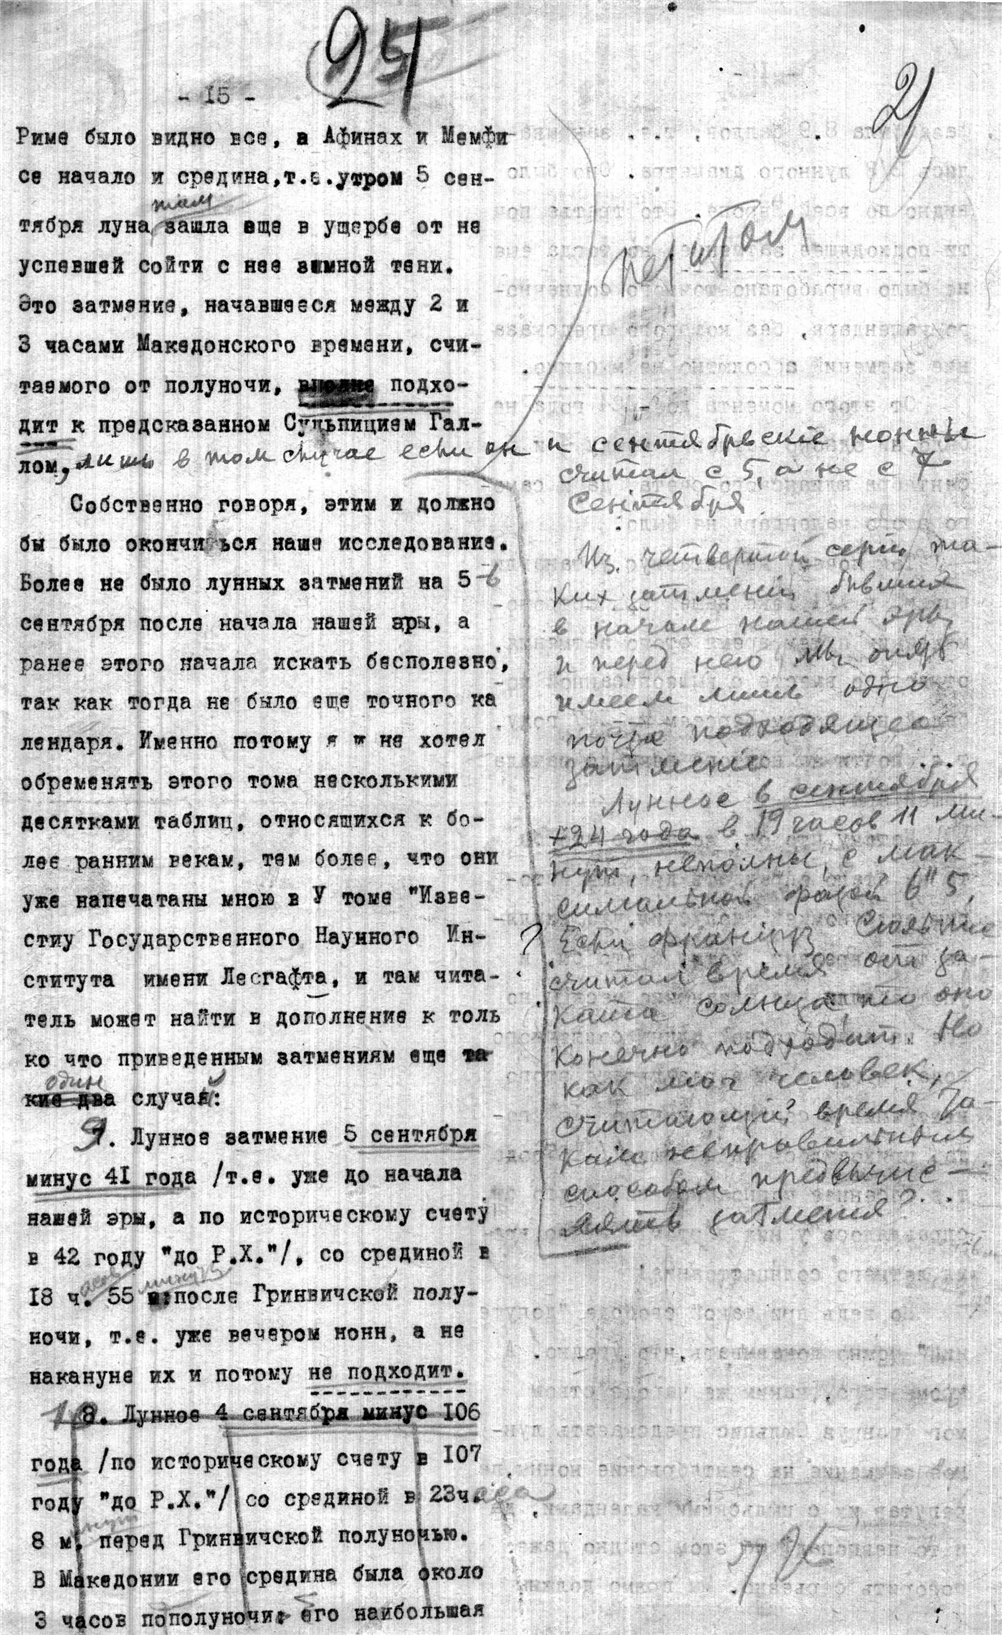 25
- 15 -
21
Риме было видно все, в Афинах и Мемфи
се начало и средина,т.е.утром 5 сен-
там
тября луна зашла еще в ущербе от не
успевшей сойти с нее земной тени.
Это затмение, начавшееся между 2 и
3 часами Македонского времени, счи-
таемого от полуночи, вполне подхо-
дит к предсказанном Сульпицием Гал-
лом, лишь в том случае если он и сентябрьские нонны
считал с 5, а не с 7
Сентября.
петитом
Собственно говоря, этим и должно
бы было окончиться наше исследование.
Более не было лунных затмений на 5-6
сентября после начала нашей эры, а
ранее этого начала искать бесполезно,
так как тогда не было еще точного ка
лендаря. Именно потому я и не хотел
обременять этого тома несколькими
десятками таблиц, относящихся к бо-
лее ранним векам, тем более, что они
уже напечатаны мною в У томе "Изве-
стиу Государственного Научного Ин-
ститута имени Лесгафта, и там чита-
тель может найти в дополнение к толь
ко что приведенным затмениям еще та
один
кие два случай:
9
7. Лунное затмение 5 сентября
минус 41 года /т.е. уже до начала
нашей эры, а по историческому счету
в 42 году "до Р.Х."/, со срединой в
асов минут
18 ч. 55 м:после Гринвичской полу-
ночи, т.е. уже вечером нонн, а не
накануне их и потому не подходит.
10
8. Лунное 4 сентября минус 106
года /по историческому счету в 107
году "до Р.Х."/ со срединой в 23ч.аса
инут
8 м. перед Гринвичской полуночью.
В Македонии его средина была около
3 часов пополуночи: его наибольшая
Из четвертой серии та-
ких затмений бывших
в начале нашей эры
и перед нею мы опять
имеем лишь одно
почти подходящее
затмение
Лунное в сентября
+24 года в 19 часов 11 ми-
нут, неполны, с мак-
симальной фазой 6"5
? Если Франциз Сюльпис
считал время от за-
ката солнца, то оно
конечно подходит. Но
как мог человек,
считающий время за-
ката неправильным
способом предвычис-
лять затмения?